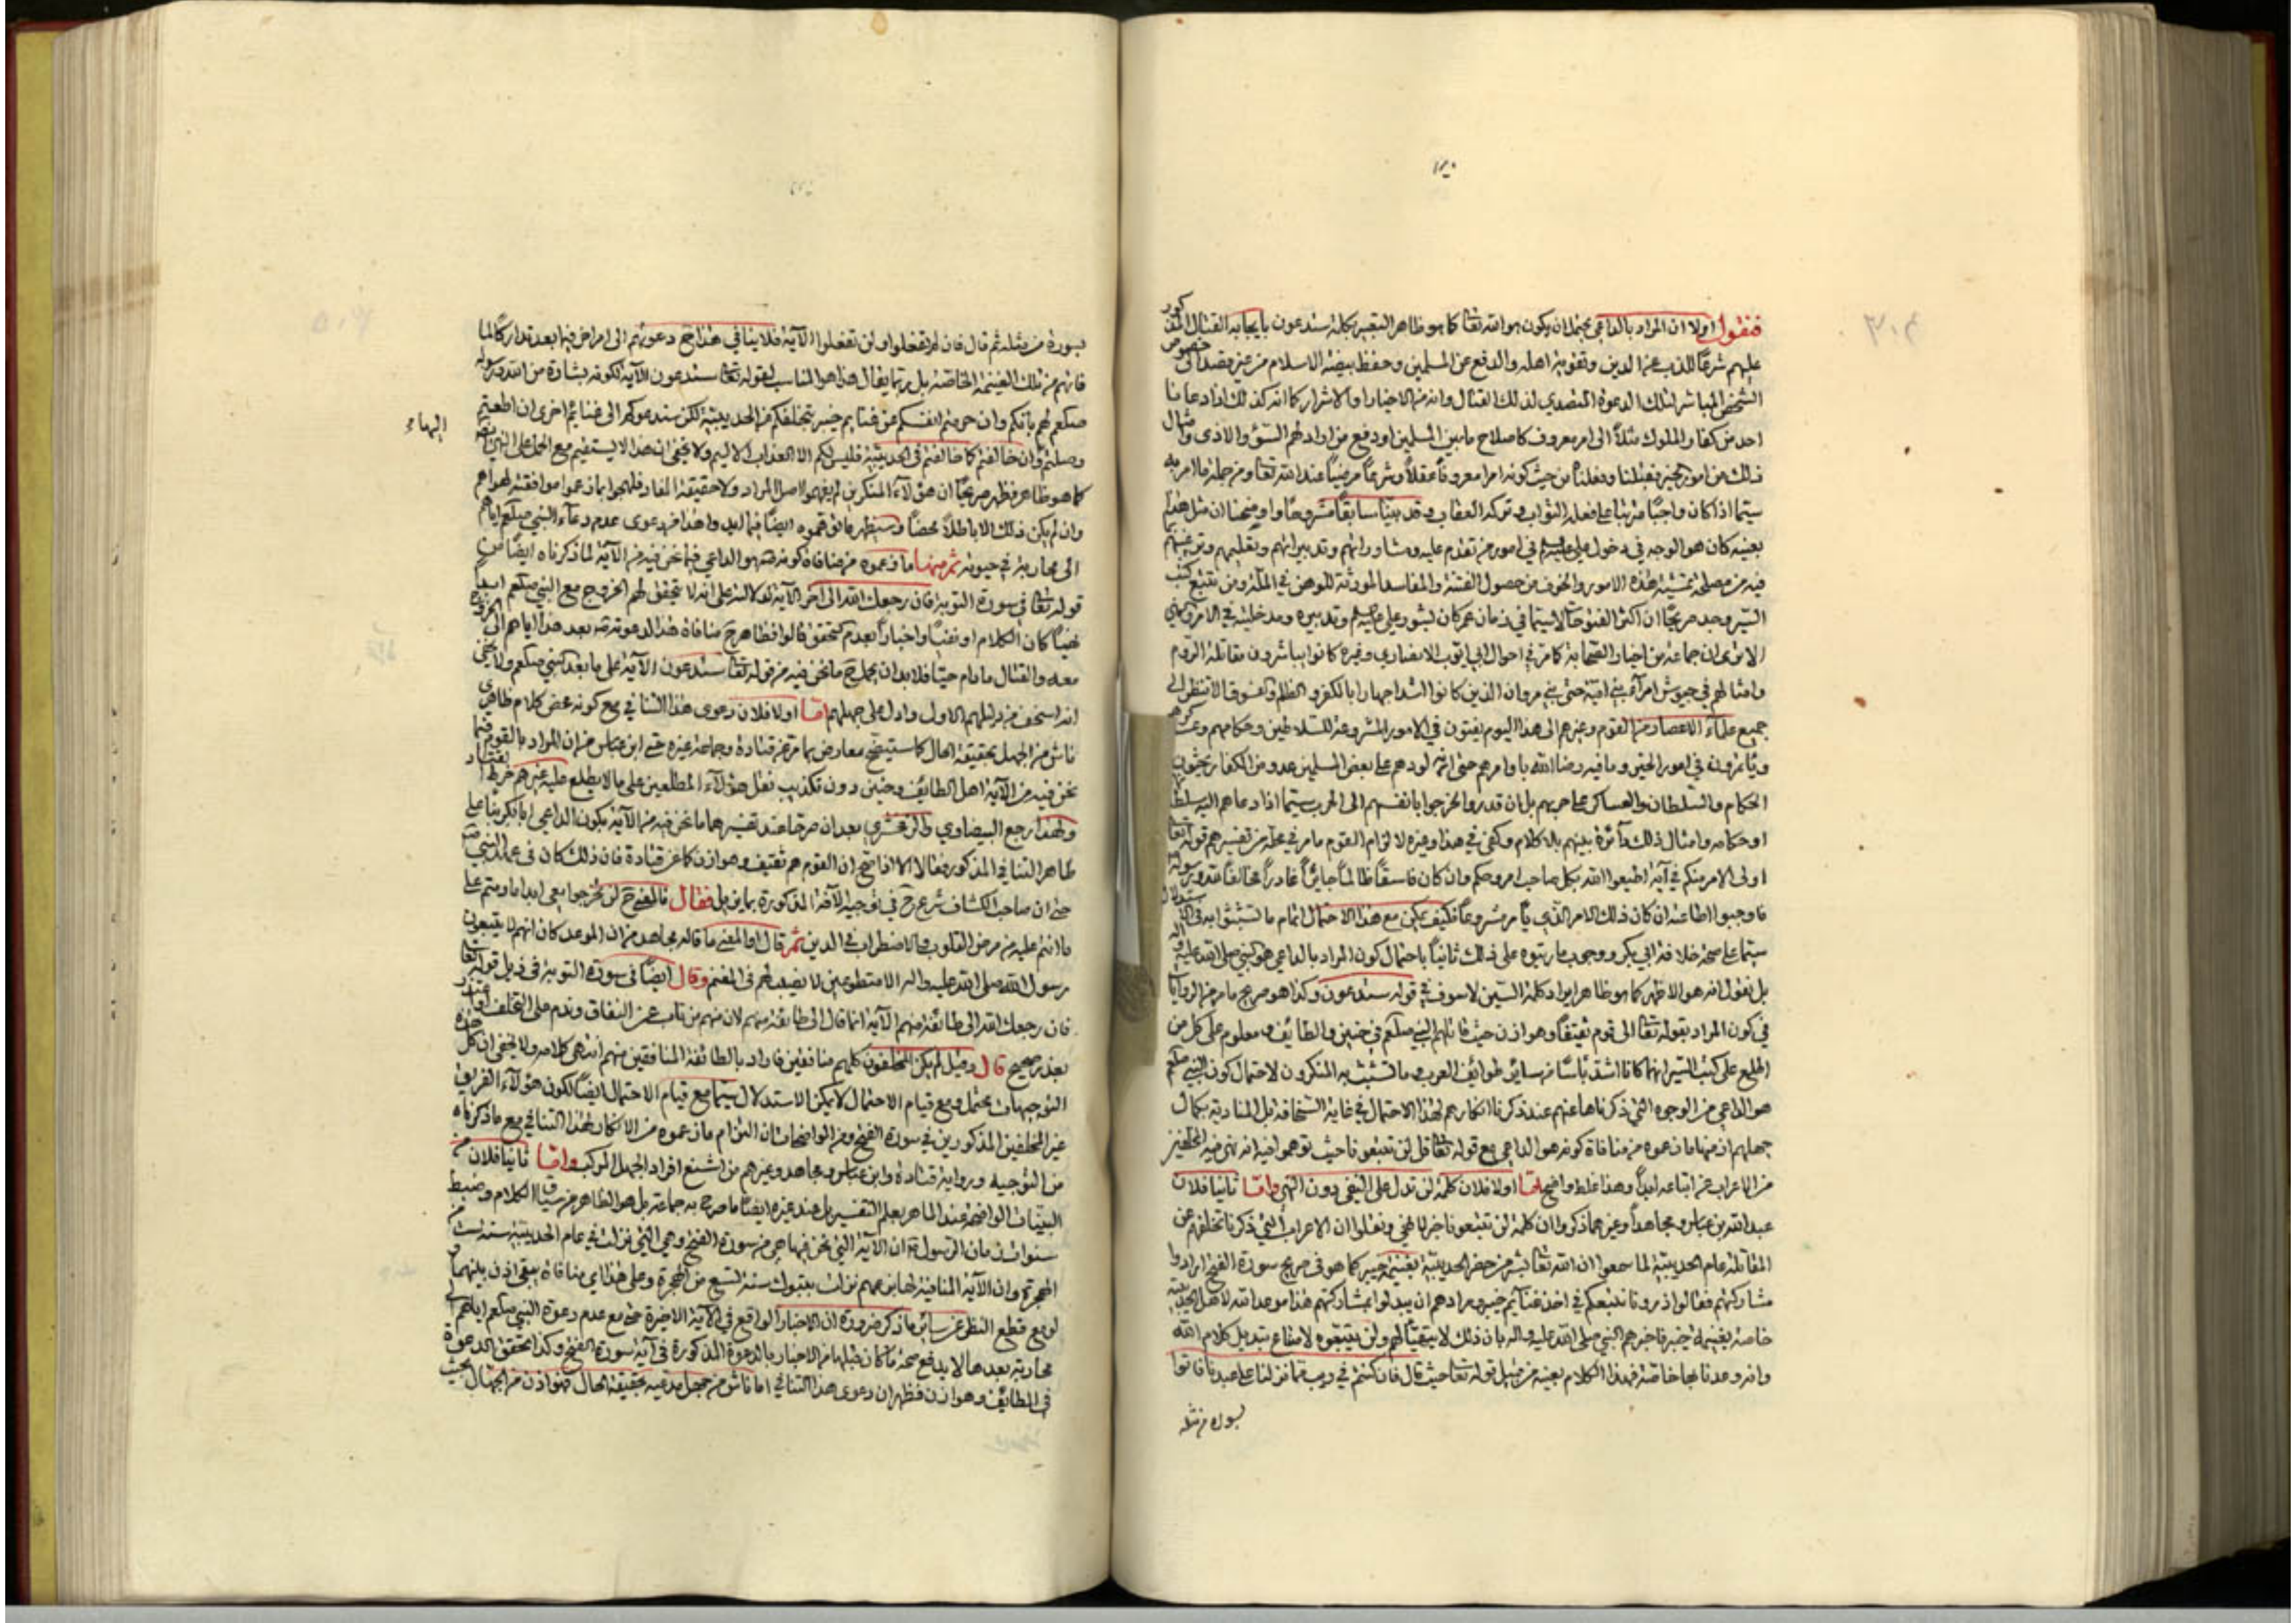 فنقول اولا ان المراد بالداعي يحتمل ان يكون هو الله تعالى كما هو ظاهر التعبير بكلمة ستدعون بايجابه القتال المذكور
عليهم شرعًا للذب عن الدين وتقوية اهله والدفع عن المسلمين وحفظ بيضة الاسلام من غير قصد الى خصوص
الشخص المباشر لتلك الدعوة المتصدي لذلك القتال وانه من الاخيار او الاشرار كما انه كذلك اذا دعانا
احد من كفار الملوك مثلاً الى امر معروف كاصلاح ما بين المسلمين او دفع من اراد لهم السوء والاذى وامثال
ذلك من امور الخير فقبلنا وفعلنا من حيث كونه امرا معروفاً عقلاً وشرعاً مرضياً عند الله تعالى ومن جملة ما امر به
سيما اذا كان واجبًا مرتبا على فعله الثواب وتركه العقاب وقد بينا سابقًا مشروحًا واوضحنا ان مثل هذا
بعينه كان هو الوجه في دخول علي عليه السلم في امور من تقدم عليه ومشاوراتهم وتدبيراتهم وتعليمهم وترغيبهم
فيه من مصلحة تمشية هذه الامور والخوف من حصول الفتنة والمفاسد المورثة للوهن في الملة ومن تتبع كتب
السير وجد صريحًا ان اكثر الفتوحات لا سيما في زمان عمر كان بشور علي عليه السلم وتدبيره ومدخليته في الامر
الا ترى ان جماعة من اخيار الصحابة كما مر في احوال ابي ايوب الانصاري وغيره كانوا يباشرون مقاتلة الروم
وامثالهم في جيوش امرآء بني امية حتى بني مروان الذين كانوا اشد اجهارا بالكفر والظلم والفسوق الا تنظر الى
جميع علمآء الاعصار من القوم وغيرهم الى هذا اليوم يفتون في الامور المشروعة للسلاطين وحكامهم
ويأتمرونه في امور الخير وما فيه رضا الله باوامرهم حتى انه لو دهم على بعض المسلمين عدو من الكفار يحثون
الحكام والسلطان والعساكر على حربهم بل ان قدروا لخرجوا بانفسهم الى الحرب سيما اذا دعاهم اليه سلطان
او حكامه وامثال ذلك دآئرة بينهم بلا كلام وكفى في هذا وغيره لالزام القوم ما مر في محله من تفسيرهم قوله تعالى
اولى الامر منكم في آية اطيعوا الله بكل صاحب امر وحكم وان كان فاسقًا ظالمًا جايرًا غادرًا مخالفًا لله ورسوله
فاوجبوا اطاعته ان كان ذلك الامر الذي يأمر مشروعًا فكيف يمكن مع هذا الاحتمال اتمام ما تشبثوا به في الاستدلال
سيما على صحة خلافة ابي بكر ووجوب ما رتبوه على ذلك ثانيًا باحتمال كون المراد بالداعي هو النبي صلى الله عليه وآله
بل نقول انه هو الاظهر كما هو ظاهر ايراد كلمة السين لا سوف في قوله ستدعون وكذا هو صريح ما مر من الروايات
في كون المراد بقوله تعالى الى قوم ثقيفًا وهوازن حيث قاتلهم النبي صلعم في حنين والطائف ومعلوم على كل من
اطلع على كتب السير انهما كانا اشد بأسًا من سائر طوائف العرب وما تشبث به المنكرون لاحتمال كون النبي صلعم
هو الداعي من الوجوه التي ذكرناها عنهم عند ذكرنا انكارهم لهذا الاحتمال في غاية السخافة بل المنادية بكمال
جهلهم اذ منها ما زعموه من منافاة كونه هو الداعي مع قوله تعالى قل لن تتبعونا حيث توهموا فيه انه نهى فيه المخلفين
من الاعراب عن اتباعه ابداً وهذا غلط واضح اما اولا فلان كلمة لن تدل على النفي دون النهي واما ثانيا فلان
عبد الله بن عباس ومجاهداً وغيرهما ذكروا ان كلمة لن تتبعونا خبر لا نهي ونقلوا ان الاعراب الذين ذكرنا تخلفهم عن
المقاتلة عام الحديبية لما سمعوا ان الله تعالى بشر من حضر الحديبية بغنيمة خيبر كما هو في صريح سورة الفتح ارادوا
مشاركتهم فقالوا ذرونا نتبعكم في اخذ غنائم خيبر ومرادهم ان يبدلوا بمشاركتهم هذا موعد الله لاهل الحديبية
خاصة بغنيمة خيبر فاخبرهم النبي صلى الله عليه وآله بان ذلك لا يتهيأ لهم ولن يتبعوه لامتناع تبديل كلام الله
وانه وعدنا بها خاصة فهذا الكلام بعينه من قبيل قوله تعالى حيث قال فان كنتم في ريب مما نزلنا على عبدنا فاتوا
بسورة من مثله
بسورة من مثله ثم قال فان لم تفعلوا ولن تفعلوا الآية فلا ينافي هذا ح دعوتهم الى امر اخر فيما بعد تداركًا لما
فاتهم من تلك الغنيمة الخاصة بل ربما يقال هذا هو المناسب لقوله تعالى ستدعون الآية لكونه بشارة من الله ورسوله
صلعم لهم بانكم وان حرمتم انفسكم عن غنائم خيبر بتخلفكم من الحديبية لكن ستدعوكم الى غنائم اخرى ان اطعتم
اليها
وصلتم وان خالفتم كما خالفتم في الحديبية فليس لكم الا العذاب الاليم ولا يخفى ان هذا لا يستقيم مع الحمل على النهي
كما هو ظاهر فظهر صريحًا ان هؤلآء المنكرين لم يفهموا اصل المراد ولا حقيقة المفاد فلهجوا بما زعموا موافقته لهواهم
وان لم يكن ذلك الا باطلاً محضًا وستظهر ما توهموه ايضًا فيما بعد واهذا في دعوى عدم دعآء النبي صلعم اياهم
الى محاربة في حيوته ثم منها ما زعموه من منافاة كونه هو الداعي فيما نحن فيه من الآية لما ذكرناه ايضًا من
قوله تعالى في سورة التوبة فان رجعك الله الى آخر الآية لدلالته على انه لا يتحقق لهم الخروج مع النبي صلعم ابداً
نهيًا كان الكلام او نفيًا واخباراً بعدم تحقق الخروج قالوا فظاهر ح منافاة هذا لدعوته بعد هذا اياهم الى الخروج
معه والقتال ما دام حيًا فلا بد ان يحمل ح ما نحن فيه من قوله تعالى ستدعون الآية على ما بعد النبي صلعم ولا يخفى
انه اسخف من دليلهم الاول وادل على جهلهم اما اولا فلان دعوى هذا التنافي مع كونه محض كلام ظاهري
ناش من الجهل بحقيقة الحال كما سيتضح معارض بما مر عن قتادة وجماعة غيره حتى ابن عباس من ان المراد بالقوم فيما
نحن فيه من الآية اهل الطائف وحنين دون تكذيب نقل هؤلآء المطلعين على ما لا يطلع عليه غيرهم خرط القتاد
ولهذا رجع البيضاوي والزمخشري بعد ان صرحا عند تفسيرهما ما نحن فيه من الآية بكون الداعي ابا بكر بناء على
ظاهر التنافي المذكور فقالا الا اذا صح ان القوم هم ثقيف وهوازن كما عن قتادة فان ذلك كان في عهد النبي ص
حتى ان صاحب الكشاف شرع ح في توجيه الآية المذكورة بما يزيل فقال فالمعنى ح لن تخرجوا معي ابدا ما دمتم على
ما انتم عليه من مرض القلوب والاضطراب في الدين ثم قال او المعنى ما قاله مجاهد من ان الموعد كان انهم لا يتبعون
رسول الله صلى الله عليه وآله الا متطوعين لا نصيب لهم في المغنم وقال ايضًا في سورة التوبة في ذيل قوله تعالى
فان رجعك الله الى طائفة منهم الآية انما قال الى طائفة منهم لان منهم من تاب عن النفاق وندم على التخلف او اعتذر
بعذر صحيح قال وقيل لم يكن المخلفون كلهم منافقين فاراد بالطائفة المنافقين منهم انتهى كلامه ولا يخفى ان كل هذه
التوجيهات محتمل ومع قيام الاحتمال لا يمكن الاستدلال سيما مع قيام الاحتمال ايضًا لكون هؤلآء الفريق
غير المخلفين المذكورين في سورة الفتح ومن الواضحات ان التزام ما زعموه من الانكار لهذا التنافي مع ما ذكرناه
من التوجيه ورواية قتادة وابن عباس ومجاهد وغيرهم من اشنع افراد الجهل المركب واما ثانيا فلان من
البينات الواضحة عند الماهر بعلم التفسير بل عند غيره ايضًا ما صرح به جماعة بل هو الظاهر من سياق الكلام وضبط
سنوات زمان الرسول ان الآية التي نحن فيها هي من سورة الفتح وهي التي نزلت في عام الحديبية سنة ست من
الهجرة وان الآية المنافية لها بزعمهم نزلت بتبوك سنة التسع من الهجرة وعلى هذا اي منافاة يبقى اذن بينهما و
لو مع قطع النظر عن سائر ما ذكر ضرورة ان الاخبار الواقع في الآية الاخيرة حتى مع عدم دعوة النبي صلعم اياهم الى
محاربة بعدها لا يدفع صحة ما كان قبلها من الاخبار بالدعوة المذكورة في آية سورة الفتح وكذا تحقق الدعوة
في الطائف وهوازن فظهر ان دعوى هذا التنافي اما ناش من جهل مدعيه بحقيقة الحال فهو اذن من الجهال بحيث